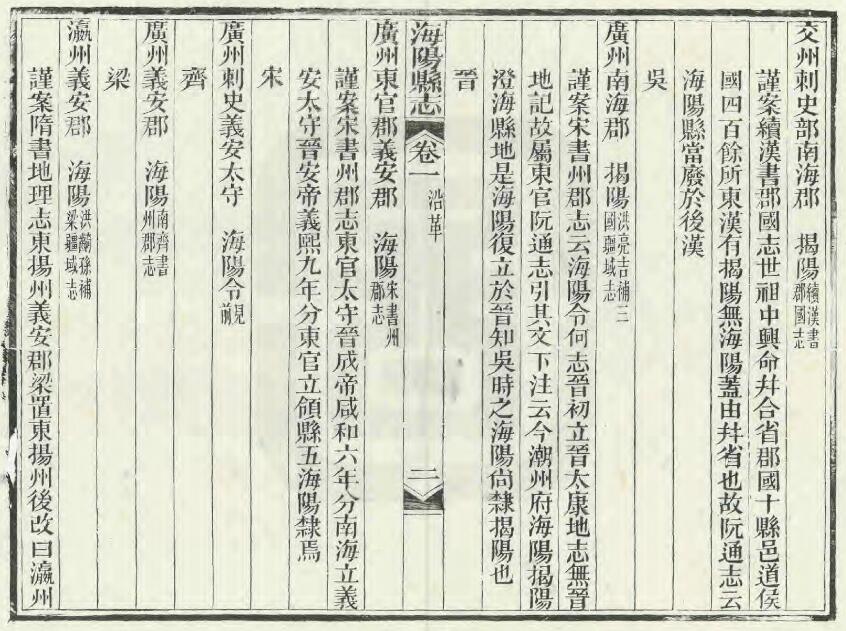 交州刺史部南海郡　揭陽續漢書郡國志
謹案續漢書郡國志世祖中興命并合省郡國十縣邑道侯
國四百餘所東漢有揭陽無海陽蓋由并省也故阮通志云
海陽縣當廢於後漢
吳
廣州南海郡　揭陽洪亮吉補三國疆域志
謹案宋書州郡志云海陽令何志晉初立晉太康地志無晉
地記故屬東官阮通志引其文下注云今潮州府海陽揭陽
澄海縣地是海陽復立於晉知吳時之海陽尚隸揭陽也
晉
海陽縣志　卷一　沿革　二
廣州東官郡義安郡　海陽宋書州郡志
謹案宋書州郡志東官太守晉成帝咸和六年分南海立義
安太守晉安帝義熙九年分東官立領縣五海陽隸焉
宋
廣州刺史義安太守　海陽令見前
齊
廣州義安郡　海陽南齊書州郡志
梁
瀛州義安郡　海陽洪齮孫補梁疆域志
謹案隋書地理志東揚州義安郡梁置東揚州後改曰瀛州